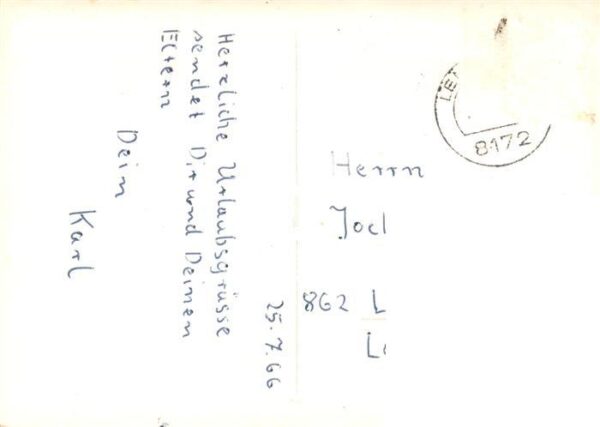 25.7.66
Herzliche Urlaubsgrüsse
sendet Dir und Deinen
Eltern
Dein
Karl
Herrn
862
8172